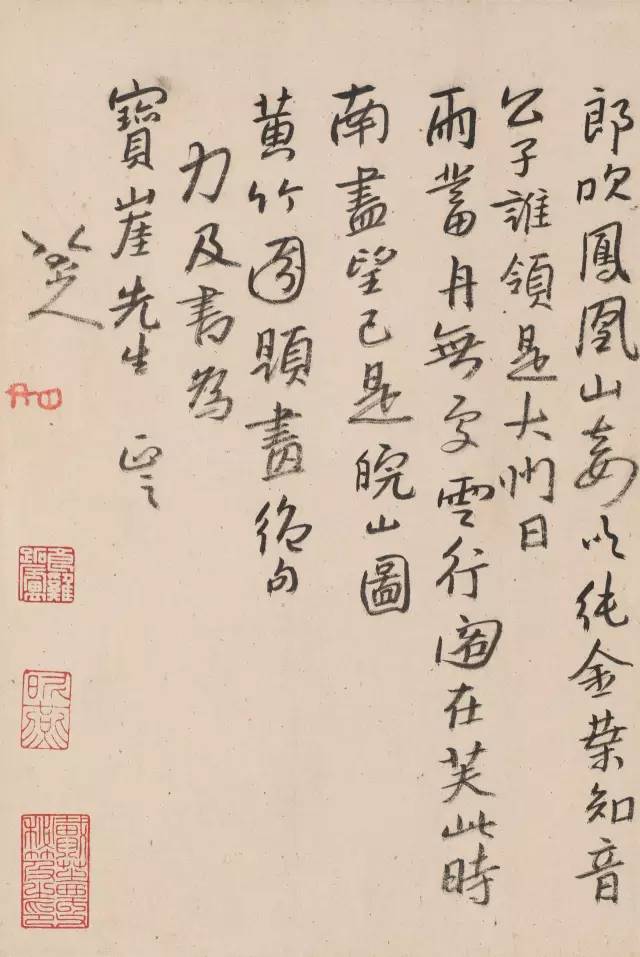 郎吹鳳凰山妾以純金葉知音
公子誰領是大州日
雨蓄舟無処雲行图在芙此時
南盡望已是皖山圖
黄竹園題畫絶句
力及書為
寶崖先生 正之
八大山人